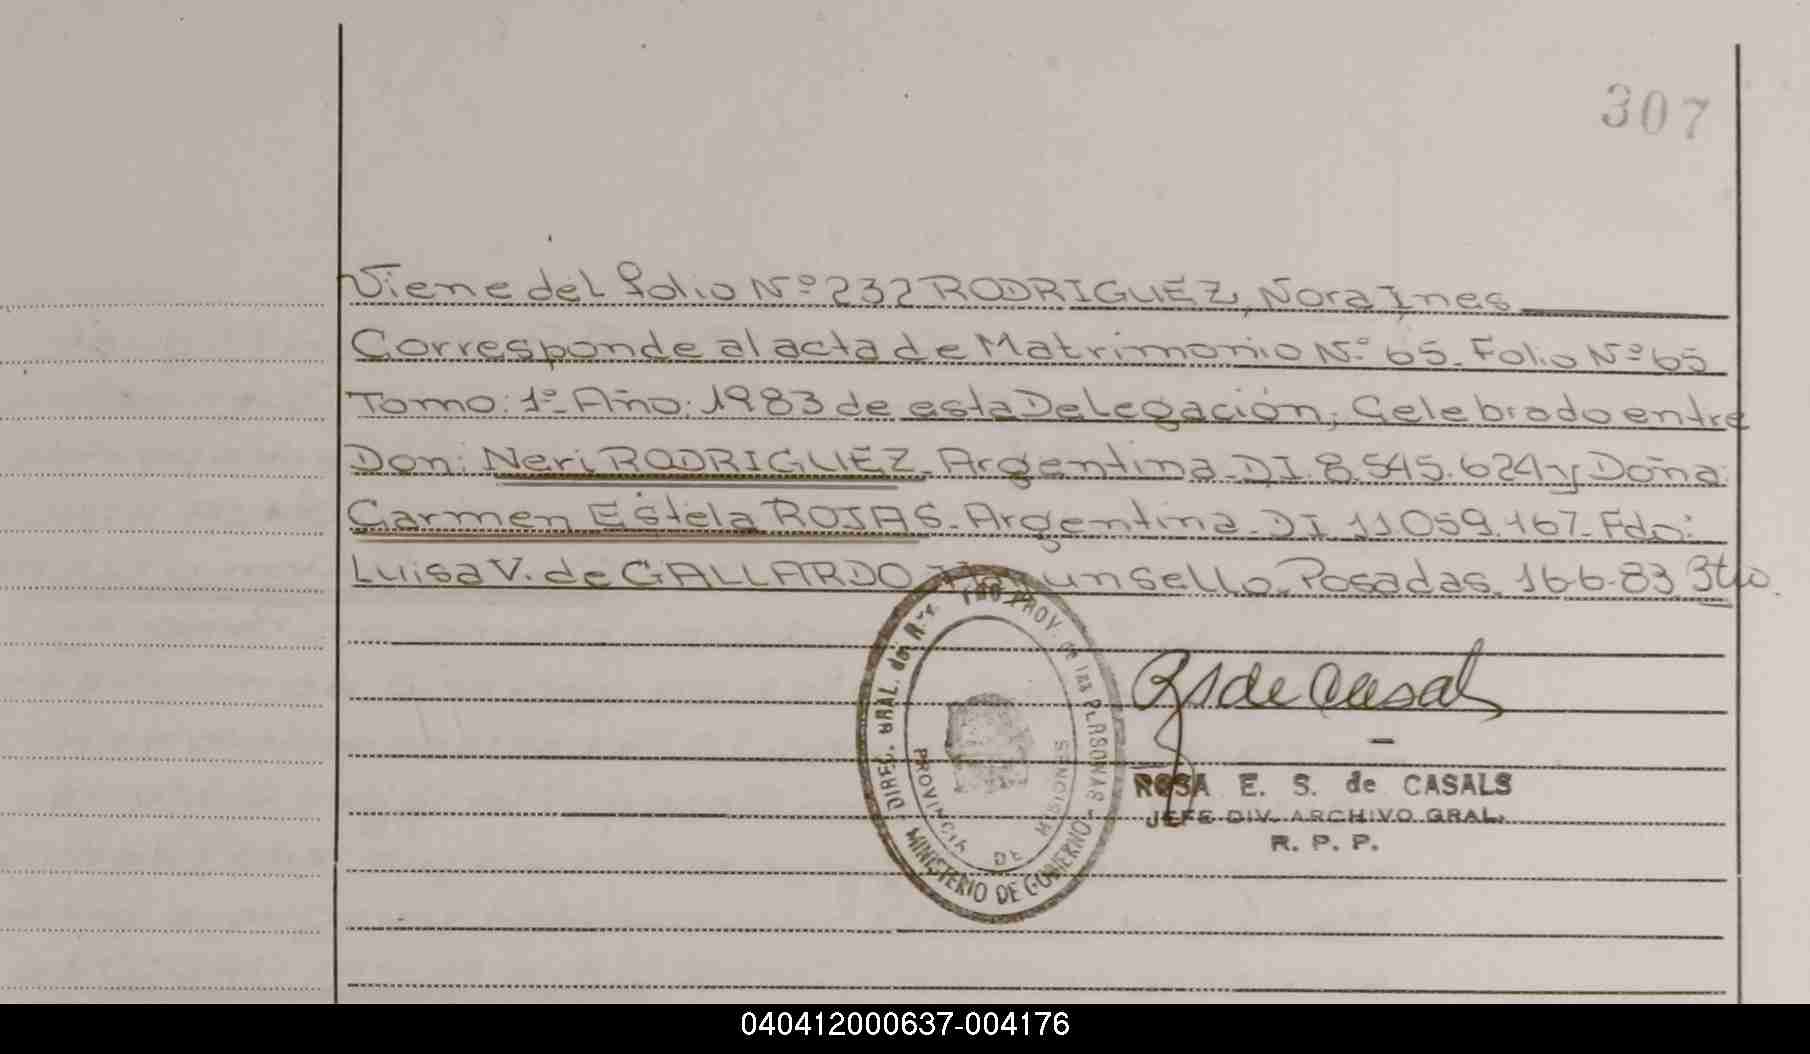 307
Viene del folio Nº 232 RODRIGUEZ, Nora Ines
Corresponde al acta de Matrimonio Nº 65. Folio Nº 65
Tomo: 1º- Año: 1983 de esta Delegación, Celebrado entre
Don: Neri RODRIGUEZ- Argentina- DI. 8.545.624 y Doña:
Carmen Estela ROJAS- Argentina- DI 11.059.167- Fdo:
Luisa V. de GALLARDO un Sello. Posadas. 16-6-83
DIREC. GRAL. del PROV. de las PERSONAS
MINISTERIO DE GOBIERNO
PROVINCIA DE MISIONES
de Casals
ROSA E. S. de CASALS
JEFE DIV. ARCHIVO GRAL.
R. P. P.
040412000637-004176